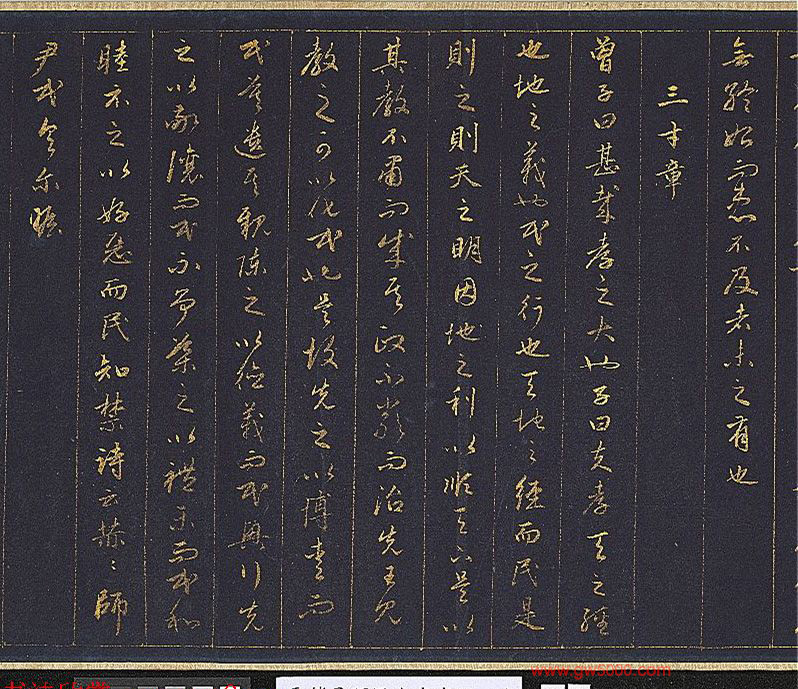 無終始而患不及者未之有也
三才章
曾子曰甚哉孝之大也子曰夫孝天之經
也地之義也民之行也天地之經而民是
則之則天之明因地之利以順天下是以
其教不肅而成其政不嚴而治先王見
教之可以化民也是故先之以博愛而
民莫遺其親陳之以德義而民興行先
之以敬讓而民不爭導之以禮樂而民和
睦示之以好惡而民知禁詩云赫〻師
尹民具爾瞻
www.gw5000.com